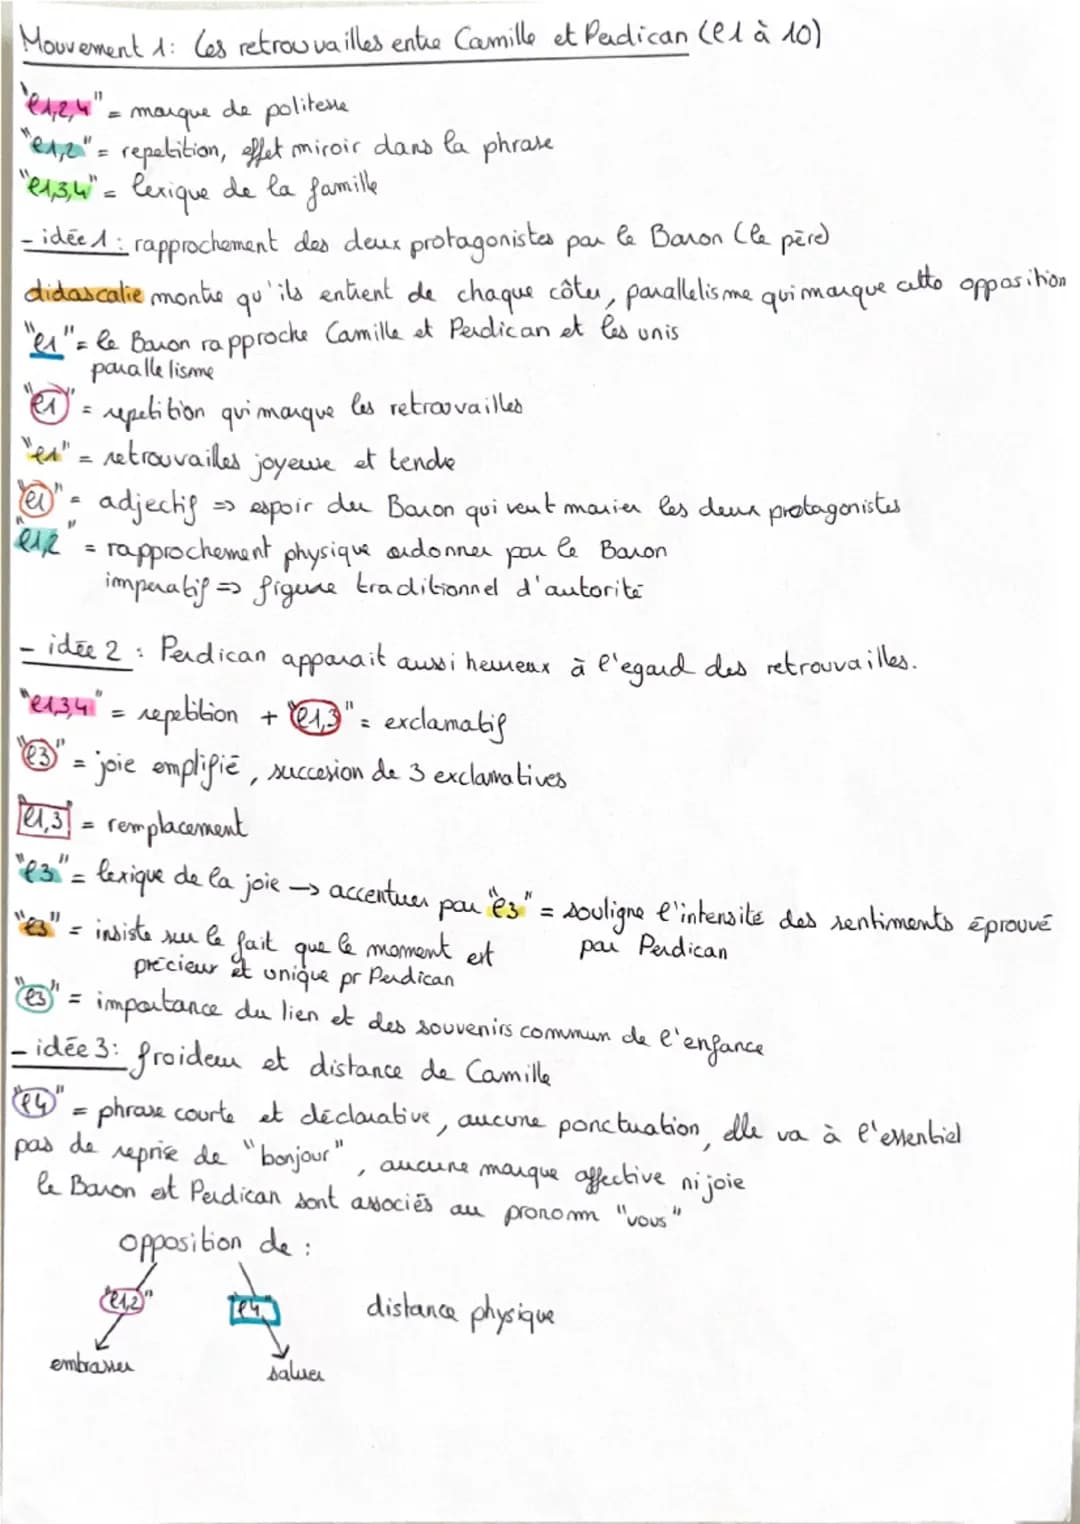 Mouvement 1: les retrouvailles entre Camille et Perdican (l1 à 10)
"l1,2,4" = marque de politesse
"l1,2" = repetition, effet miroir dans la phrase
"l1,3,4" = lexique de la famille
- idée 1 : rapprochement des deux protagonistes par le Baron (le père)
didascalie montre qu'ils entrent de chaque côter, parallelisme qui marque cette opposition
"l1" = le Baron rapproche Camille et Perdican et les unis
parallelisme
"l1" = repetition qui marque les retrouvailles
"l1" = retrouvailles joyeuse et tendre
"l1" = adjectif => espoir du Baron qui veut marier les deux protagonistes
"l1,2" = rapprochement physique ordonner par le Baron
imperatif => figure traditionnel d'autorité
- idée 2 : Perdican apparait aussi heureux à l'egard des retrouvailles.
"l1,3,4" = repetition + "l1,3" = exclamatif
"l3" = joie emplifié, succesion de 3 exclamatives
"l1,3" = remplacement
"l3" = lexique de la joie -> accentuer par "l3" = souligne l'intensité des sentiments éprouvé
par Perdican
"l3" = insiste sur le fait que le moment est
précieux et unique pr Perdican
"l3" = importance du lien et des souvenirs commun de l'enfance
- idée 3: froideur et distance de Camille
"l4" = phrase courte et déclarative, aucune ponctuation, elle va à l'essentiel
pas de reprise de "bonjour", aucune marque affective ni joie
le Baron est Perdican sont associés au pronom "vous"
opposition de :
"l1,2" "l4" distance physique
embrasser saluer